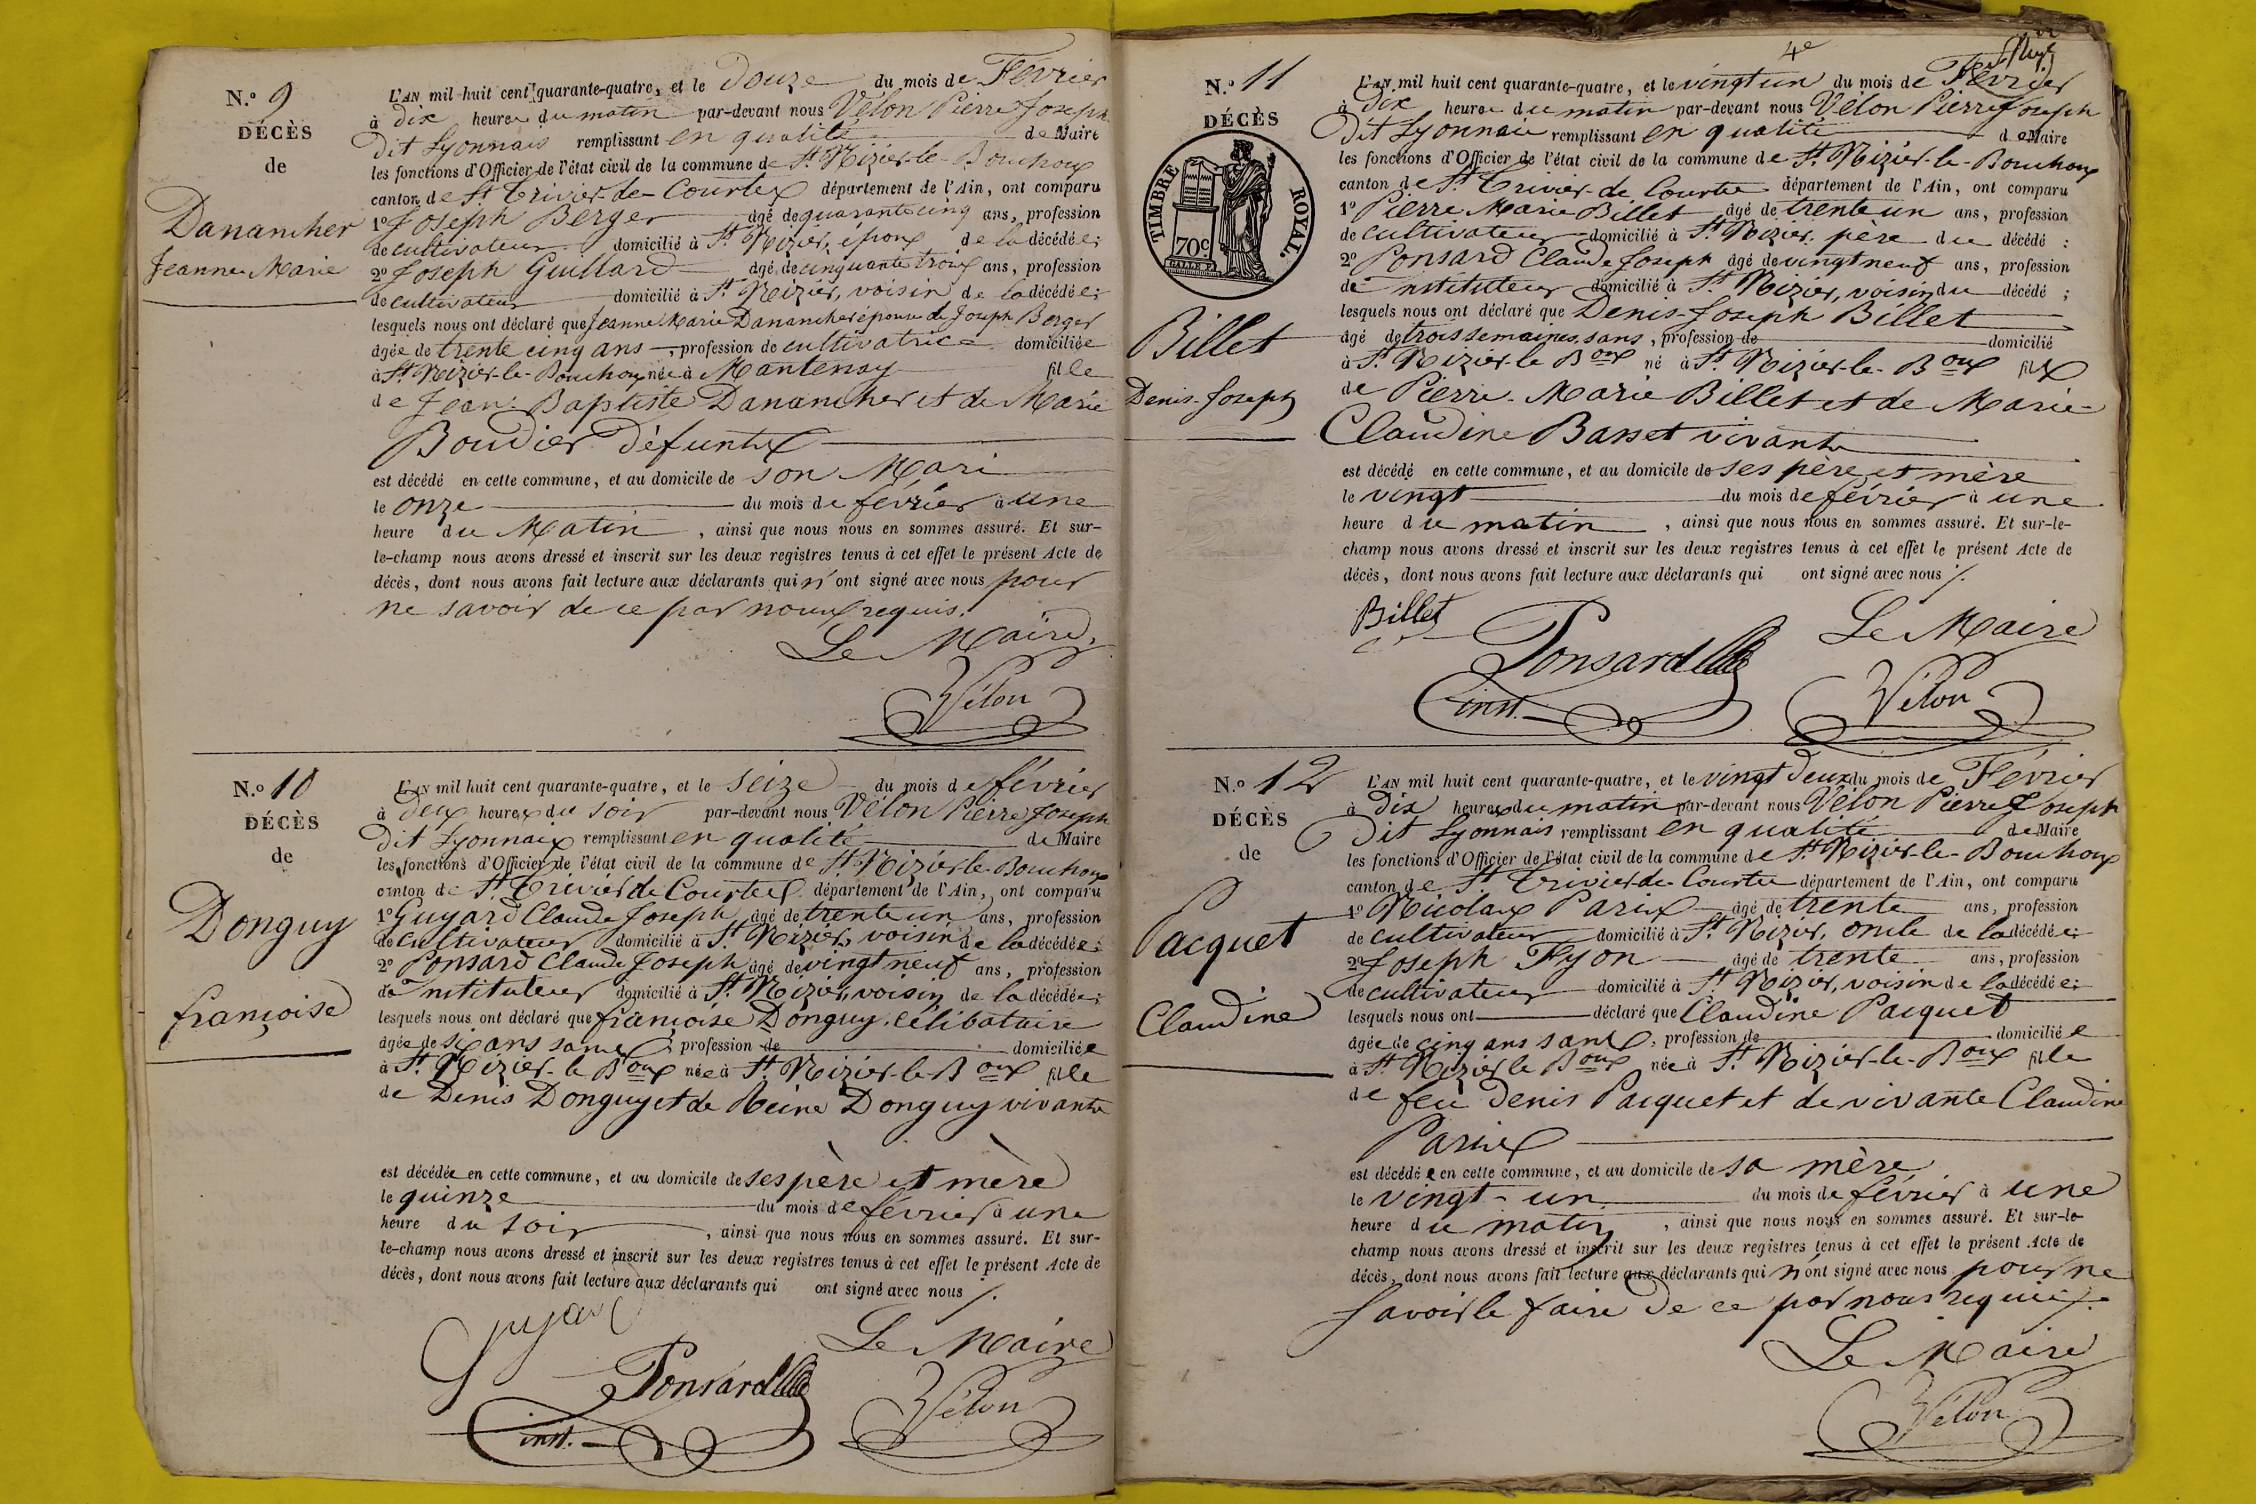 N.º 9
DÉCÈS
de
Danancher
Jeanne Marie
L'AN mil huit cent quarante-quatre, et le Douze du mois de Février
à dix heures du matin par-devant nous Vélon Pierre Joseph
Dit Lyonnais remplissant en qualité de Maire
les fonctions d'Officier de l'état civil de la commune de St. Nizier-le-Bouchoux
canton de St Trivier de Courtes département de l'Ain, ont comparu
1º Joseph Berger âgé de quarante cinq ans, profession
de cultivateur domicilié à St. Nizier, époux de la décédée;
2º Joseph Guillard âgé de cinquante trois ans, profession
de cultivateur domicilié à St Nizier, voisin de la décédée;
lesquels nous ont déclaré que Jeanne Marie Danancher épouse de Joseph Berger
âgée de trente cinq ans, profession de cultivatrice domiciliée
à St. Nizier-le-Bouchoux née à Mantenay fille
de Jean-Baptiste Danancher et de Marie
Boudier défunts
est décédé en cette commune, et au domicile de son Mari
le onze du mois de février à une
heure du Matin, ainsi que nous nous en sommes assuré. Et sur-
le-champ nous avons dressé et inscrit sur les deux registres tenus à cet effet le présent Acte de
décès, dont nous avons fait lecture aux déclarants qui n'ont signé avec nous pour
ne savoir de ce par nous requis.
Le Maire,
Vélon
N.º 10
DÉCÈS
de
Donguy
françoise
L'AN mil huit cent quarante-quatre, et le seize du mois de février
à deux heures du soir par-devant nous Vélon Pierre Joseph
Dit Lyonnais remplissant en qualité de Maire
les fonctions d'Officier de l'état civil de la commune de St. Nizier-le-Bouchoux
canton de St. Trivier de Courtes département de l'Ain, ont comparu
1º Guyard Claude Joseph âgé de trente un ans, profession
de cultivateur domicilié à St. Nizier, voisin de la décédée;
2º Ponsard Claude Joseph âgé de vingt neuf ans, profession
d'instituteur domicilié à St. Nizier, voisin de la décédée;
lesquels nous ont déclaré que françoise Donguy, célibataire
âgée de six ans sans profession de domiciliée
à St. Nizier-le Boux née à St. Nizier-le-Boux fille
de Denis Donguy et de Reine Donguy vivants
est décédée en cette commune, et au domicile de ses père et mère
le quinze du mois de février à une
heure du soir, ainsi que nous nous en sommes assuré. Et sur-
le-champ nous avons dressé et inscrit sur les deux registres tenus à cet effet le présent Acte de
décès, dont nous avons fait lecture aux déclarants qui ont signé avec nous ./.
Guyard
Le Maire
Ponsard
inst.
Vélon
4e
N.º 11
DÉCÈS
TIMBRE ROYAL.
70c
Billet
Denis-Joseph
L'AN mil huit cent quarante-quatre, et le vingt un du mois de Février
à Dix heures du matin par-devant nous Vélon Pierre Joseph
Dit Lyonnais remplissant en qualité de Maire
les fonctions d'Officier de l'état civil de la commune de St. Nizier-le-Bouchoux
canton de St. Trivier de Courtes département de l'Ain, ont comparu
1º Pierre Marie Billet âgé de trente un ans, profession
de cultivateur domicilié à St. Nizier, père du décédé;
2º Ponsard Claude Joseph âgé de vingt neuf ans, profession
d'instituteur domicilié à St. Nizier, voisin du décédé;
lesquels nous ont déclaré que Denis-Joseph Billet
âgé de trois semaines, sans, profession de domicilié
à St. Nizier-le Boux né à St. Nizier-le-Boux fils
de Pierre-Marie Billet et de Marie-
Claudine Basset vivants
est décédé en cette commune, et au domicile de ses père et mère
le vingt du mois de février à une
heure du matin, ainsi que nous nous en sommes assuré. Et sur-le-
champ nous avons dressé et inscrit sur les deux registres tenus à cet effet le présent Acte de
décès, dont nous avons fait lecture aux déclarants qui ont signé avec nous ./.
Billet
Le Maire
Ponsard
inst.
Vélon
N.º 12
DÉCÈS
de
Pacquet
Claudine
L'AN mil huit cent quarante-quatre, et le vingt deux du mois de Février
à Dix heures du matin par-devant nous Vélon Pierre Joseph
Dit Lyonnais remplissant en qualité de Maire
les fonctions d'Officier de l'état civil de la commune de St. Nizier-le-Bouchoux
canton de St. Trivier de Courtes département de l'Ain, ont comparu
1º Nicolas Parix âgé de trente ans, profession
de cultivateur domicilié à St. Nizier, oncle de la décédée;
2º Joseph Fyon âgé de trente ans, profession
de cultivateur domicilié à St. Nizier, voisin de la décédée;
lesquels nous ont déclaré que Claudine Pacquet
âgée de cinq ans sans, profession de domiciliée
à St. Nizier le Boux née à St. Nizier-le-Boux fille
de feu Denis Pacquet et de vivante Claudine
Parix
est décédée en cette commune, et au domicile de sa mère
le vingt-un du mois de février à une
heure du matin, ainsi que nous nous en sommes assuré. Et sur-le-
champ nous avons dressé et inscrit sur les deux registres tenus à cet effet le présent Acte de
décès, dont nous avons fait lecture aux déclarants qui n'ont signé avec nous pour ne
savoir le faire de ce par nous requis ./.
Le Maire
Vélon